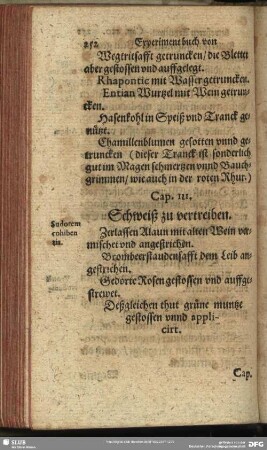 252 Experiment buch von
Wegtritsafft getruncken/ die Bletter
aber gestossen vnd auffgelegt.
Rhapontic mit Wasser getruncken.
Entian Wurtzel mit Wein getrun-
cken.
Hasenkohl in Speiß vnd Tranck ge-
nützt.
Chamillenblumen gesotten vnnd ge-
truncken (dieser Tranck ist sonderlich
gut im Magen schmertzen vnnd Bauch
grimmen/ wie auch in der roten Rhur.)
Cap. 111.
Schweiß zu vertreiben.
Sudorem
cohiben
tia.
Zerlassen Alaun mit alten Wein ver-
mischet vnd angestrichen.
Brombeerstaudensafft dem Leib an-
gestrichen.
Gedörte Rosen gestossen vnd auffge-
strewet.
Deßgleichen thut gräne muntze
gestossen vnnd appli-
cirt.
Cap.
SLUB
DFG